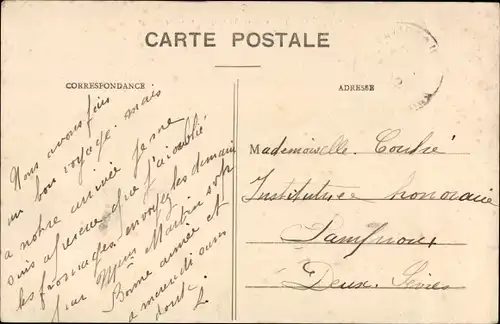 CARTE POSTALE
CORRESPONDANCE
ADRESSE
Nous avons fait
un bon voyage, mais
a notre arrivée je me
suis aperçue que j'ai oublié
les fromages envoyez les demain
par Mme Martin s v p
Bonne année et
a mercredi sans
doute
Mademoiselle Coudré
Institutrice honoraire
Pamproux
Deux Sèvres